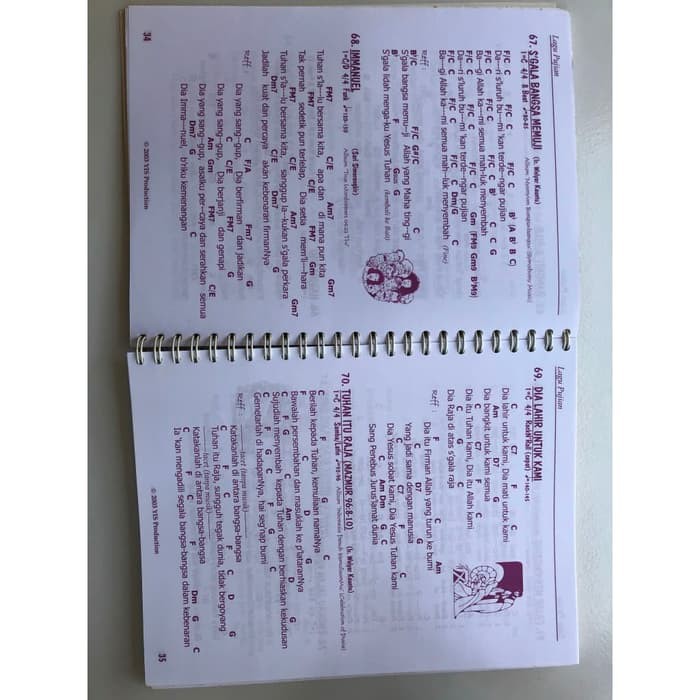 Lagu Pujian
67. S'GALA BANGSA MEMUJI (Ir. Welyar Kauntu)
1=C 4/4 8 Beat
F/C C F/C C F/C C Bb (A Bb B C)
Da—ri s'luruh bu—mi 'kan terde—ngar pujian
F/C C F/C C F/C C Bb C G
Ba—gi Allah ka—mi semua mah-luk menyembah
Da—ri s'luruh bu—mi 'kan terde—ngar pujian
Ba—gi Allah ka—mi semua mah—luk menyembah (Fine)
Reff :
Bb/C F/C G#/C C
S'gala bangsa memu-ji Allah yang Maha ting—gi
Bb F Gsus G
S'gala lidah menga-ku Yesus Tuhan (kembali ke Bait)
68. IMMANUEL (Sari Simorangkir)
1=C/D 4/4 Funk
Album "True Worshippers 0122 'Tis'"
FM7 C/E Am7 Gm7
Tuhan s'la—lu bersama kita, apa dan di mana pun kita
FM7 C/E FM7 Gm
Tak pernah sedetik pun terlelap, Dia setia mem'li—hara
FM7 C/E Am7 Gm7
Tuhan s'la—lu bersama kita, sanggup la-kukan s'gala perkara
Dm7 C/E Dm7 G
Jadilah kuat dan percaya akan kebenaran firmanNya
Reff :
C F/A Fm7 G
Dia yang sang-gup, Dia berfirman dan jadikan
C C/E FM7 G
Dia yang sang-gup, Dia berjanji dan genapi
Am Gm FM7 C/E
Dia yang sang-gup, asalku per-caya dan serahkan semua
Dm7 G C
Dia Imma—nuel, b'riku kemenangan
34
© 2003 YIS Production
Lagu Pujian
69. DIA LAHIR UNTUK KAMI
1=C 4/4 Rock'n Roll (cepat)
C C7 F C
Dia lahir untuk kami, Dia mati untuk kami
Am D7 G
Dia bangkit untuk kami semua
C C7 F C
Dia itu Tuhan kami, Dia itu Allah kami
C G C
Dia Raja di atas s'gala raja
Reff :
F C Am
Dia itu Firman Allah yang turun ke bumi
C D7 G
Yang jadi sama dengan manusia
C C7 F C
Dia Yesus sobat kami, Dia Yesus Tuhan kami
C Am Dm G C
Sang Penebus Jurus'lamat dunia
70. TUHAN ITU RAJA (MAZMUR 96:8-10) (Ir. Welyar Kauntu)
1=C 4/4 Samba/Latin
C F G C
Berilah kepada Tuhan, kemuliaan namaNya
F C D G
Bawalah persembahan dan masuklah ke p'lataranNya
C F G C Am
Sujudlah menyembah kepada Tuhan dengan berhiaskan kekudusan
F C G C
Gemetarlah di hadapanNya, hai seg'nap bumi
Reff :
Katakanlah di antara bangsa-bangsa
C F C D G
Tuhan itu Raja, sungguh tegak dunia, tidak bergoyang
Katakanlah di antara bangsa-bangsa
C F C Dm G C
Ia 'kan mengadili segala bangsa-bangsa dalam kebenaran
© 2003 YIS Production
35